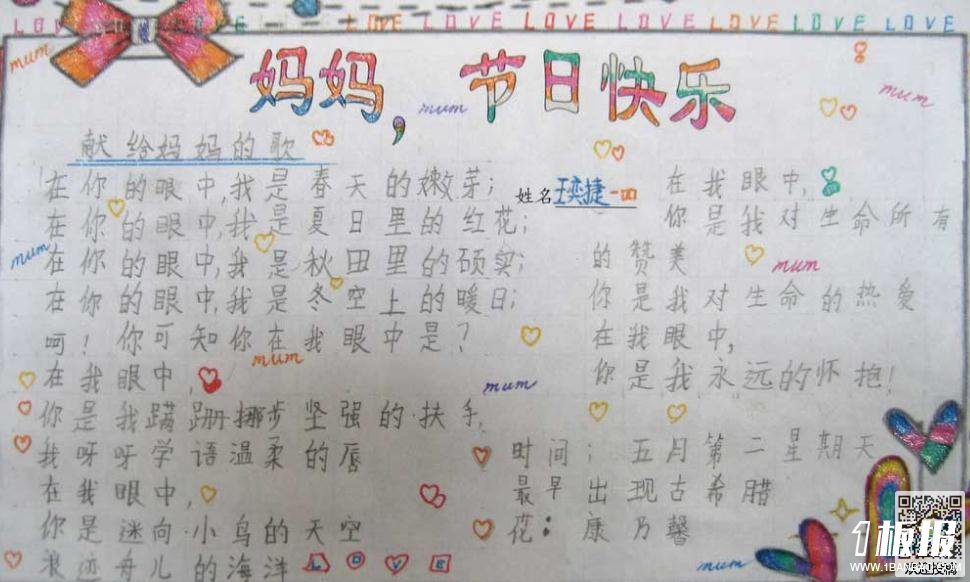 LOVE LOVE LOVE LOVE LOVE LOVE
妈妈，节日快乐
mum
mum
mum
献给妈妈的歌
在你的眼中,我是春天的嫩芽；
在你的眼中,我是夏日里的红花；
在你的眼中,我是秋田里的硕实；
在你的眼中,我是冬空上的暖日；
呵！你可知你在我眼中是？
在我眼中,
你是我蹒跚挪步坚强的扶手,
我呀呀学语温柔的唇
在我眼中,
你是迷向小鸟的天空
浪迹舟儿的海洋
LOVE
mum
mum
mum
姓名 王奕捷 一四
在我眼中,
你是我对生命所有
的赞美
mum
你是我对生命的热爱
在我眼中,
你是我永远的怀抱！
时间：五月第二星期天
最早出现古希腊
花：康乃馨
mum
1板报
WWW.1BANBAO.COM
欢迎投稿